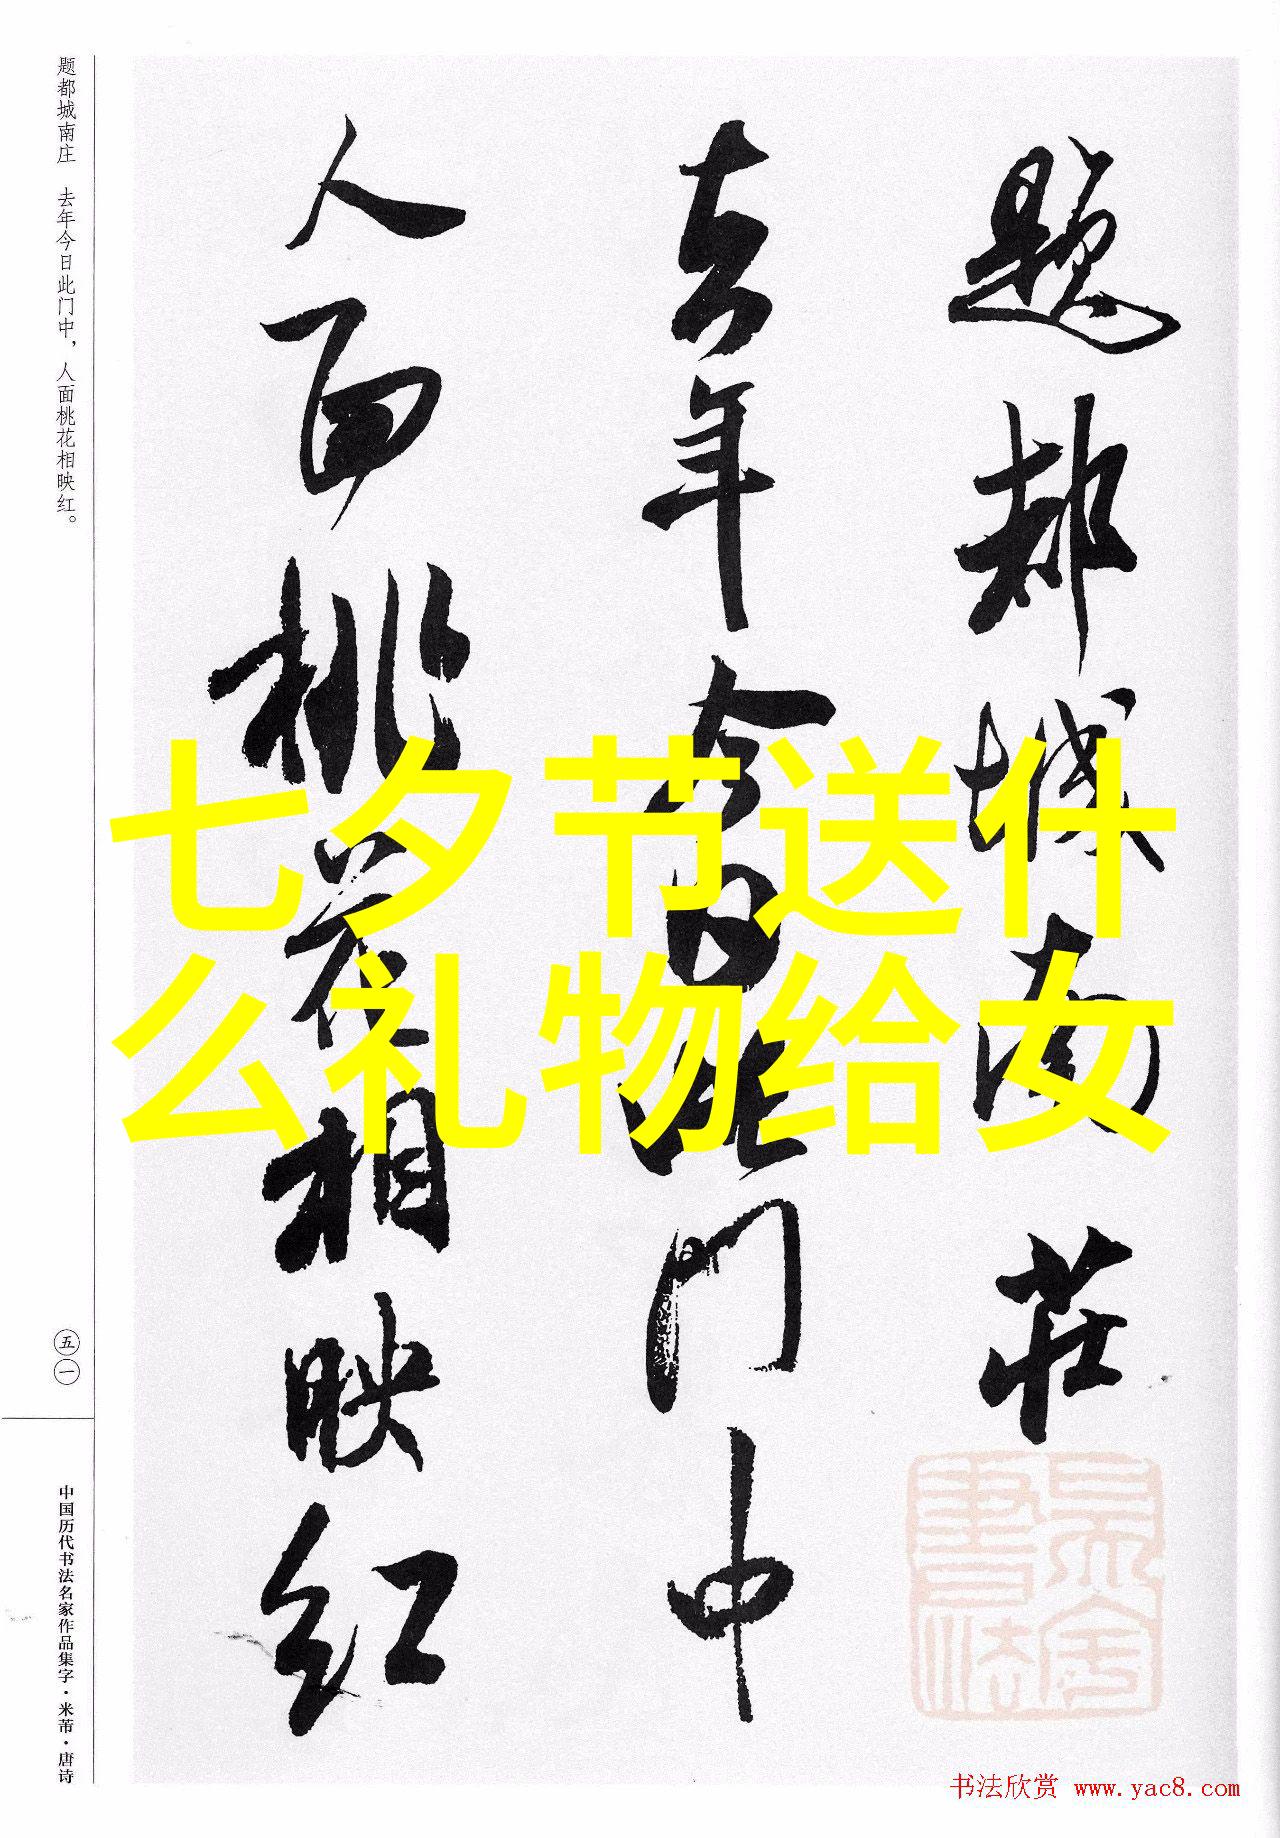 題都城南莊
去年今日此门中
人面桃花相映红
七夕节送什
么礼物给女
题都城南庄　去年今日此门中，人面桃花相映红。
五一
中国历代书法名家作品集字·米芾·唐诗
书法欣赏 www.yac8.com